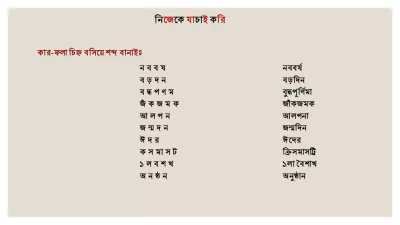 নিজেকে যাচাই করি
কার-ফলা চিহ্ন বসিয়ে শব্দ বানাইঃ
ন ব ব ষ নববর্ষ
ব ড় দ ন বড়দিন
ব দ্ধ প ণ ম বুদ্ধপূর্ণিমা
জঁ ক জ ম ক জাঁকজমক
আ ল প ন আলপনা
জ ন্ম দ ন জন্মদিন
ঈ দ র ঈদের
ক স মা স ট ক্রিসমাসট্রি
১ ল ব শ খ ১লা বৈশাখ
অ ন ষ্ঠ ন অনুষ্ঠান